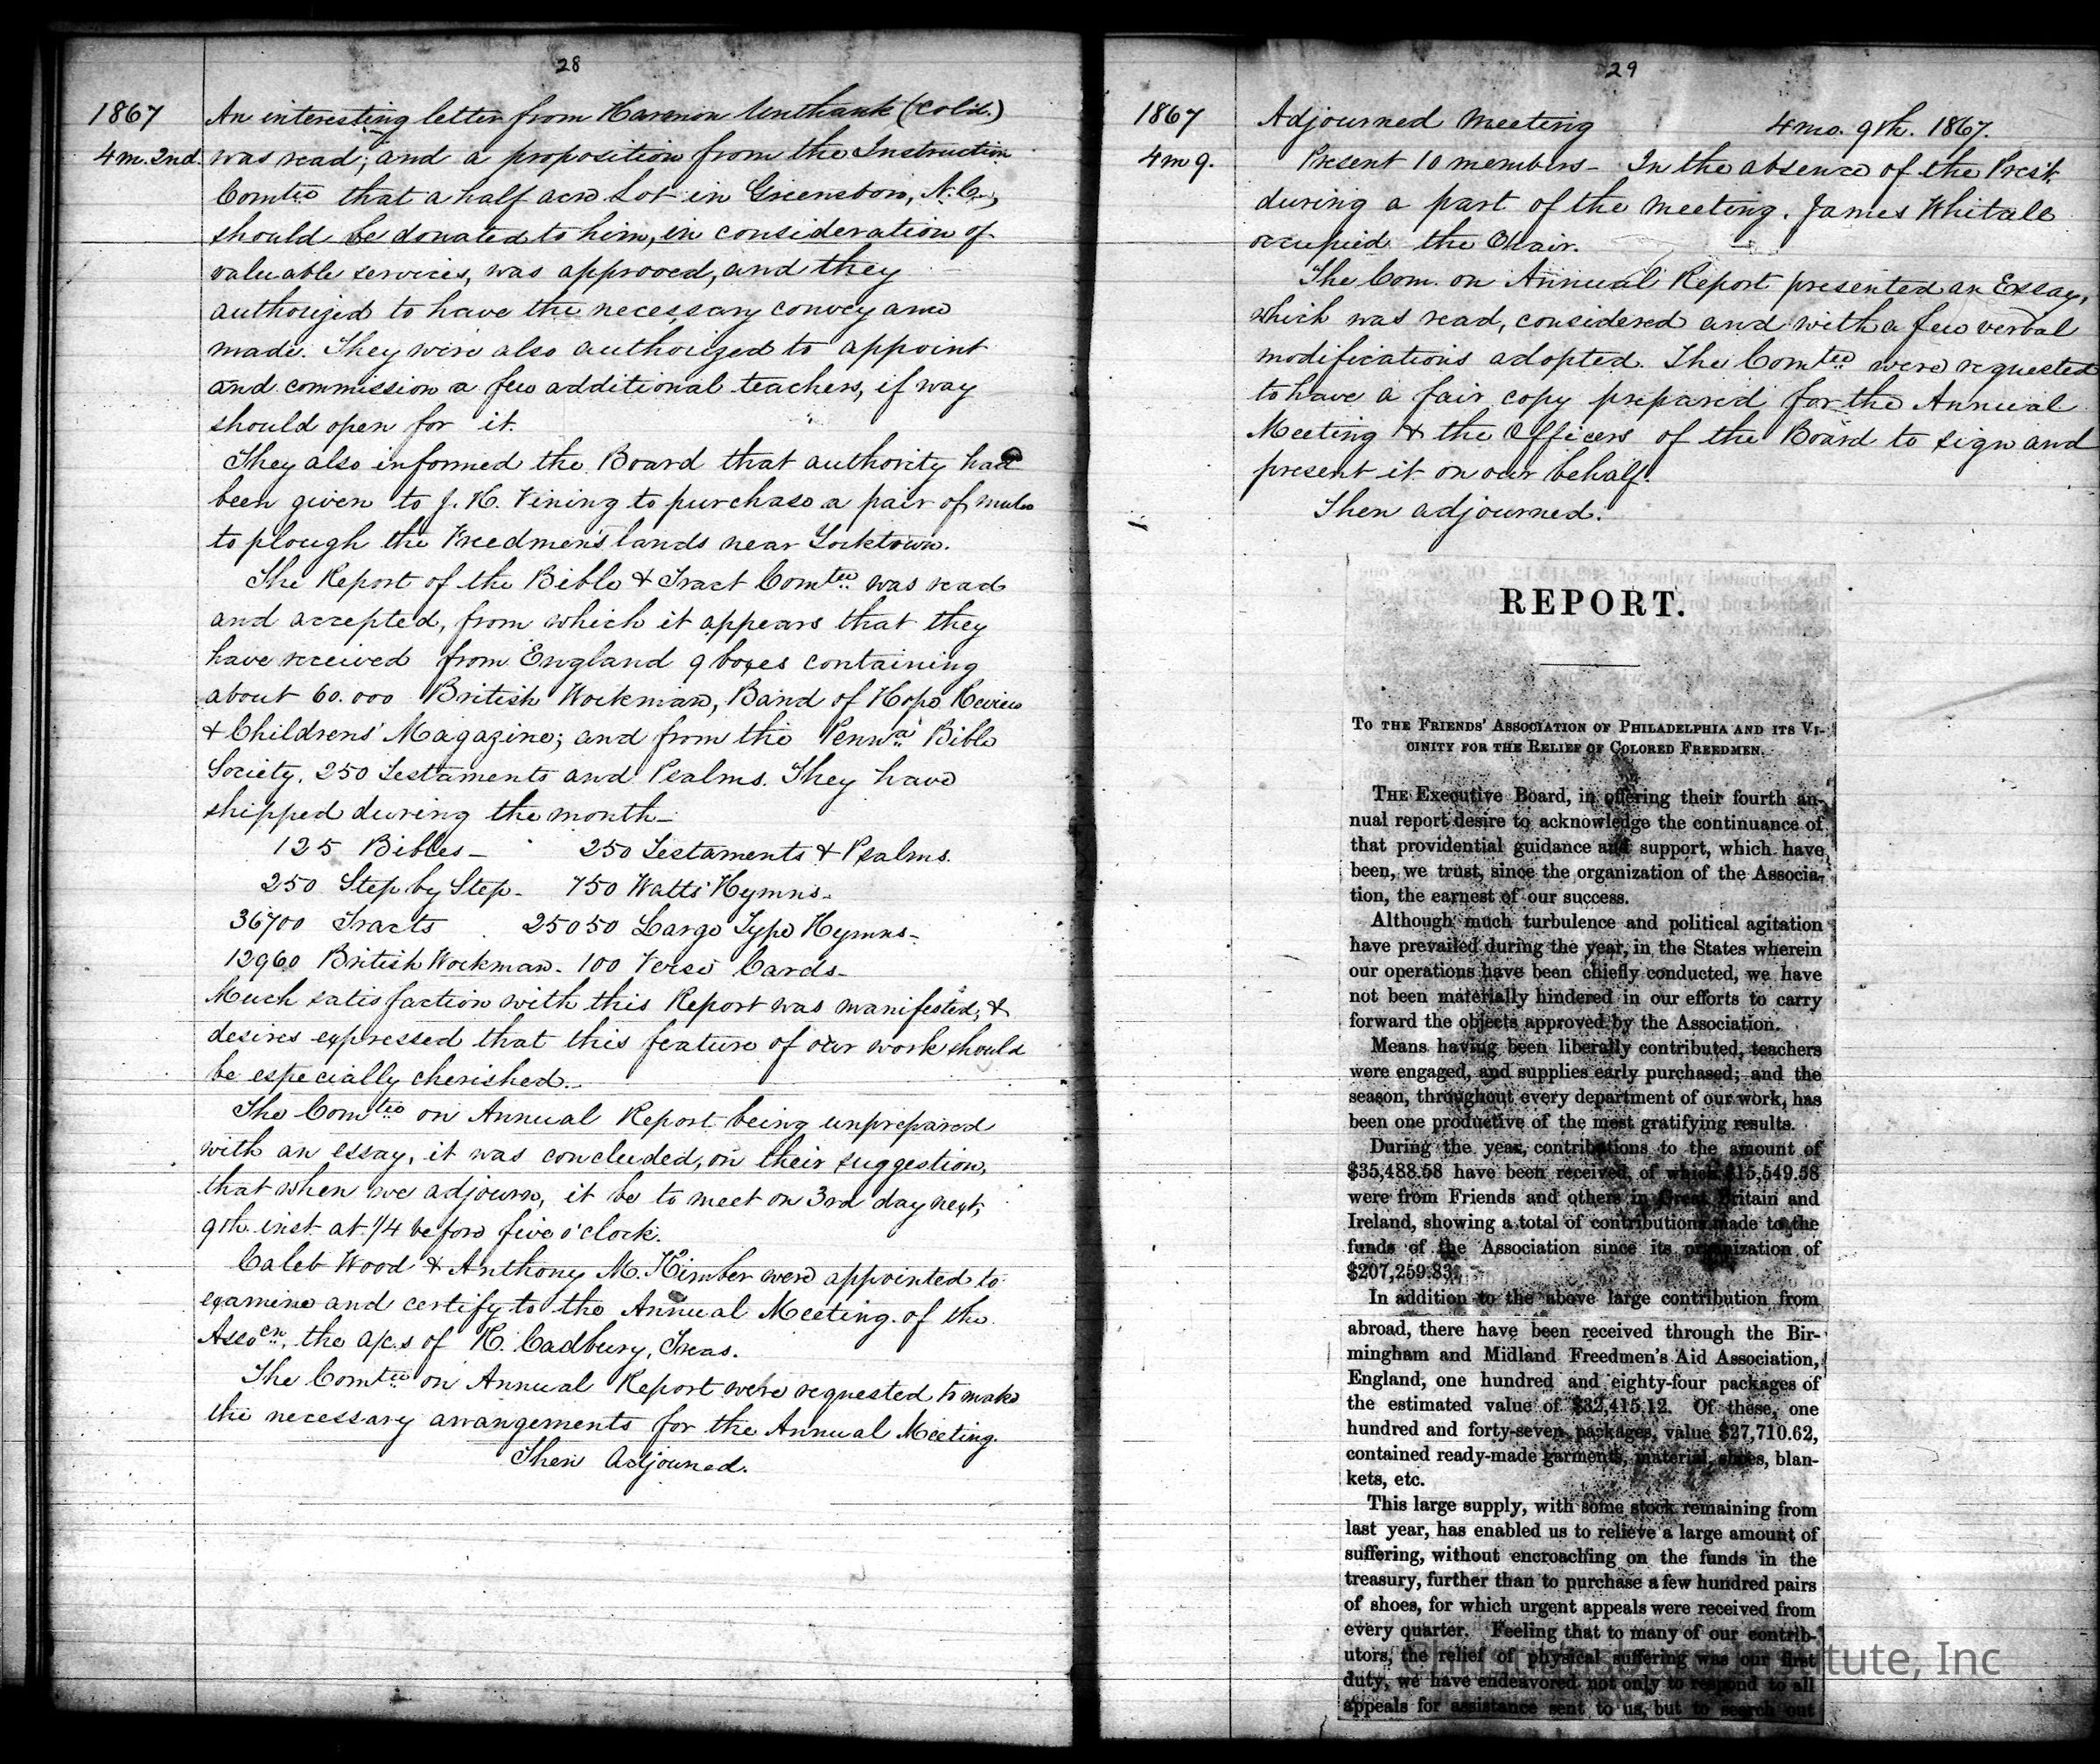 28
1867
An interesting letter from Harmon Unthank (Col'd.)
4 m. 2nd. was read; and a proposition from the Instruction
Comtee that a half acre Lot in Greensboro, N.C.,
should be donated to him, in consideration of
valuable services, was approved, and they
authorized to have the necessary conveyance
made. They were also authorized to appoint
and commission a few additional teachers, if way
should open for it.
They also informed the Board that authority had
been given to J. H. Vining to purchase a pair of mules
to plough the Freedmen's lands near Yorktown.
The Report of the Bible & Tract Comtee was read
and accepted, from which it appears that they
have received from England 9 boxes containing
about 60.000 British Workman, Band of Hope Review
& Childrens' Magazine; and from the Penna Bible
Society, 250 Testaments and Psalms. They have
shipped during the month—
125 Bibles— 250 Testaments & Psalms.
250 Step by Step— 750 Watts' Hymns—
36700 Tracts 25050 Large Type Hymns—
12960 British Workman— 100 Verse Cards—
Much satisfaction with this Report was manifested, &
desires expressed that this feature of our work should
be especially cherished.—
The Comtee on Annual Report being unprepared
with an essay, it was concluded, on their suggestion,
that when we adjourn, it be to meet on 3rd day next,
9th inst. at 1/4 before five o'clock.
Caleb Wood & Anthony M. Kimber were appointed to
examine and certify to the Annual Meeting of the
Assocn. the a/cs of R. Cadbury, Treas.
The Comtee on Annual Report were requested to make
the necessary arrangements for the Annual Meeting.
Then Adjourned.
29
1867
Adjourned Meeting 4 mo. 9th. 1867.
4 m 9. Present 10 members— In the absence of the Prest.
during a part of the meeting, James Whitall
occupied the Chair.
The Com. on Annual Report presented an Essay,
which was read, considered and with a few verbal
modifications adopted. The Comtee were requested
to have a fair copy prepared for the Annual
Meeting & the Officers of the Board to sign and
present it on our behalf.
Then adjourned.
REPORT.
To the Friends' Association of Philadelphia and its Vi-
cinity for the Relief of Colored Freedmen.
The Executive Board, in offering their fourth an-
nual report desire to acknowledge the continuance of
that providential guidance and support, which have
been, we trust, since the organization of the Associa-
tion, the earnest of our success.
Although much turbulence and political agitation
have prevailed during the year, in the States wherein
our operations have been chiefly conducted, we have
not been materially hindered in our efforts to carry
forward the objects approved by the Association.
Means having been liberally contributed, teachers
were engaged, and supplies early purchased; and the
season, throughout every department of our work, has
been one productive of the most gratifying results.
During the year, contributions to the amount of
$35,488.58 have been received, of which $15,549.58
were from Friends and others in Great Britain and
Ireland, showing a total of contributions made to the
funds of the Association since its organization of
$207,259.83.
In addition to the above large contribution from
abroad, there have been received through the Bir-
mingham and Midland Freedmen's Aid Association,
England, one hundred and eighty-four packages of
the estimated value of $32,415.12. Of these, one
hundred and forty-seven packages, value $27,710.62,
contained ready-made garments, material, shoes, blan-
kets, etc.
This large supply, with some stock remaining from
last year, has enabled us to relieve a large amount of
suffering, without encroaching on the funds in the
treasury, further than to purchase a few hundred pairs
of shoes, for which urgent appeals were received from
every quarter. Feeling that to many of our contrib-
utors, the relief of physical suffering was our first
duty, we have endeavored not only to respond to all
appeals for assistance sent to us, but to search out
Institute, Inc